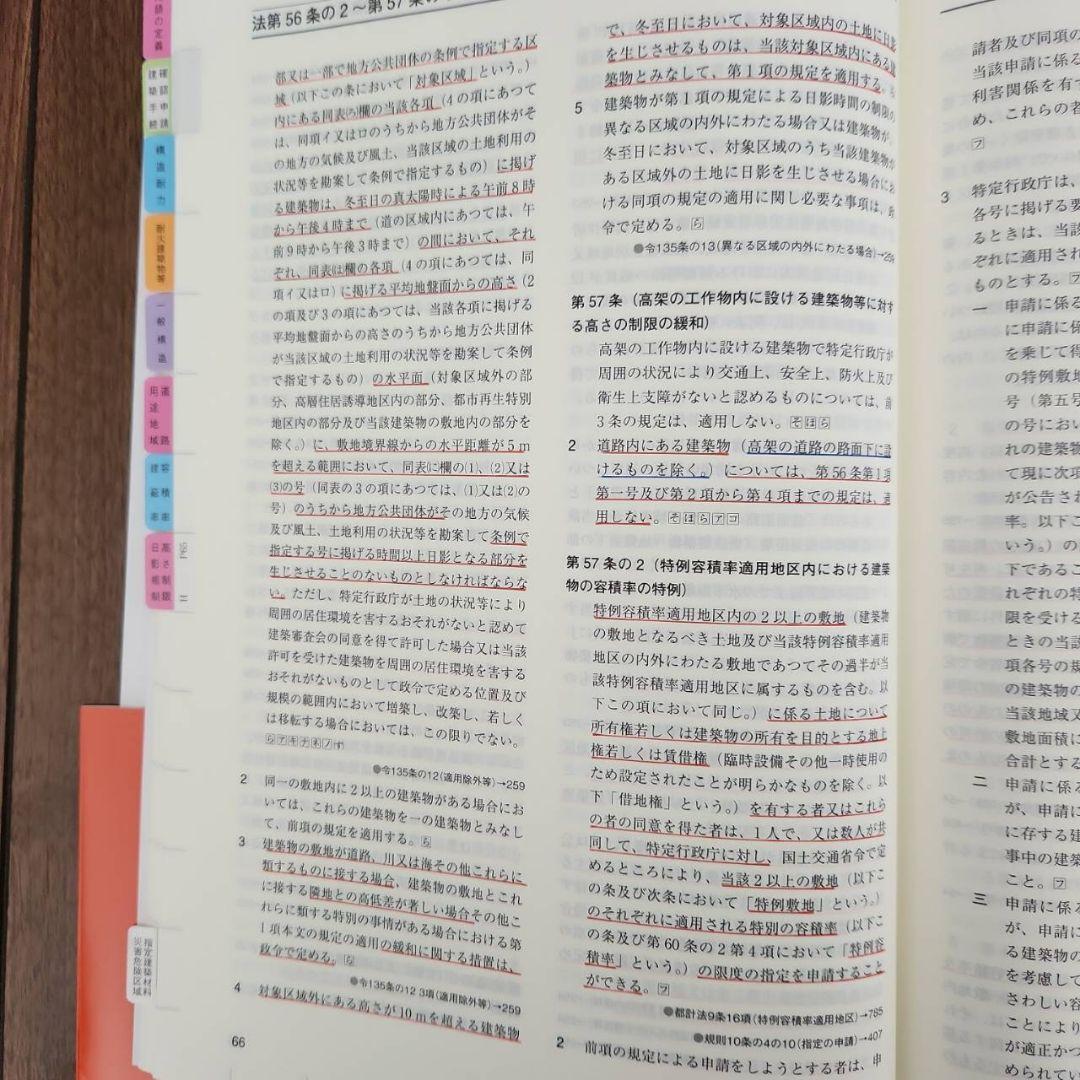 法第56条の2～第57条の
部又は一部で地方公共団体の条例で指定する区
域（以下この条において「対象区域」という。）
内にある同表(ろ)欄の当該各項（4の項にあつて
は、同項イ又はロのうちから地方公共団体がそ
の地方の気候及び風土、当該区域の土地利用の
状況等を勘案して条例で指定するもの）に掲げ
る建築物は、冬至日の真太陽時による午前8時
から午後4時まで（道の区域内にあつては、午
前9時から午後3時まで）の間において、それ
ぞれ、同表(は)欄の各項（4の項にあつては、同
項イ又はロ）に掲げる平均地盤面からの高さ（2
の項及び3の項にあつては、当該各項に掲げる
平均地盤面からの高さのうちから地方公共団体
が当該区域の土地利用の状況等を勘案して条例
で指定するもの）の水平面（対象区域外の部
分、高層住居誘導地区内の部分、都市再生特別
地区内の部分及び当該建築物の敷地内の部分を
除く。）に、敷地境界線からの水平距離が5m
を超える範囲において、同表(に)欄の(1)、(2)又は
(3)の号（同表の3の項にあつては、(1)又は(2)の
号）のうちから地方公共団体がその地方の気候
及び風土、土地利用の状況等を勘案して条例で
指定する号に掲げる時間以上日影となる部分を
生じさせることのないものとしなければならな
い。ただし、特定行政庁が土地の状況等により
周囲の居住環境を害するおそれがないと認めて
建築審査会の同意を得て許可した場合又は当該
許可を受けた建築物を周囲の居住環境を害する
おそれがないものとして政令で定める位置及び
規模の範囲内において増築し、改築し、若しく
は移転する場合においては、この限りでない。
●令135条の12（適用除外等）→259
2 同一の敷地内に2以上の建築物がある場合にお
いては、これらの建築物を一の建築物とみなし
て、前項の規定を適用する。
3 建築物の敷地が道路、川又は海その他これらに
類するものに接する場合、建築物の敷地とこれ
に接する隣地との高低差が著しい場合その他こ
れらに類する特別の事情がある場合における第
1項本文の規定の適用の緩和に関する措置は、
政令で定める。
●令135条の12 3項（適用除外等）→259
4 対象区域外にある高さが10mを超える建築物
66
で、冬至日において、対象区域内の土地に日影
を生じさせるものは、当該対象区域内にある建
築物とみなして、第1項の規定を適用する。
5 建築物が第1項の規定による日影時間の制限の
異なる区域の内外にわたる場合又は建築物が、
冬至日において、対象区域のうち当該建築物が
ある区域外の土地に日影を生じさせる場合にお
ける同項の規定の適用に関し必要な事項は、政
令で定める。ら
●令135条の13（異なる区域の内外にわたる場合）→259
第57条（高架の工作物内に設ける建築物等に対す
る高さの制限の緩和）
高架の工作物内に設ける建築物で特定行政庁が
周囲の状況により交通上、安全上、防火上及び
衛生上支障がないと認めるものについては、前
3条の規定は、適用しない。そほら
2 道路内にある建築物（高架の道路の路面下に設
けるものを除く。）については、第56条第1項
第一号及び第2項から第4項までの規定は、適
用しない。そほらアコ
第57条の2（特例容積率適用地区内における建築
物の容積率の特例）
特例容積率適用地区内の2以上の敷地（建築物
の敷地となるべき土地及び当該特例容積率適用
地区の内外にわたる敷地であつてその過半が当
該特例容積率適用地区に属するものを含む。以
下この項において同じ。）に係る土地について
所有権若しくは建築物の所有を目的とする地上
権若しくは賃借権（臨時設備その他一時使用の
ため設定されたことが明らかなものを除く。以
下「借地権」という。）を有する者又はこれら
の者の同意を得た者は、1人で、又は数人が共
同して、特定行政庁に対し、国土交通省令で定
めるところにより、当該2以上の敷地（以下こ
の条及び次条において「特例敷地」という。）
のそれぞれに適用される特別の容積率（以下こ
の条及び第60条の2第4項において「特例容
積率」という。）の限度の指定を申請すること
ができる。フ
●都計法9条16項（特例容積率適用地区）→785
●規則10条の4の10（指定の申請）→407
2 前項の規定による申請をしようとする者は、申
請者及び同項の
当該申請に係る
利害関係を有
め、これらの者
フ
3 特定行政庁は、
各号に掲げる要
るときは、当該
ぞれに適用され
ものとする。
一 申請に係る
に申請に係
を乗じて得
の特例敷地
号（第五号
の号におい
れの建築物
て現に次項
が公告され
率。以下こ
いう。）の
下であるこ
れぞれの特
限を受ける
ときの当該
項各号の規
の建築物の
当該地域又
敷地面積に
合計とする
二 申請に係る
が、申請に
に存する建
事中の建築
こと。フ
三 申請に係る
が、申請に
る建築物の
を考慮して
さわしい容
ことにより
が適正かつ
められてい
語の定義
確認申請
建築手続
構造耐力
耐火建築物等
一般構造
道路
用途地域
容積率
建蔽率
高さ制限
日影規制
指定建築材料
災害危険区域